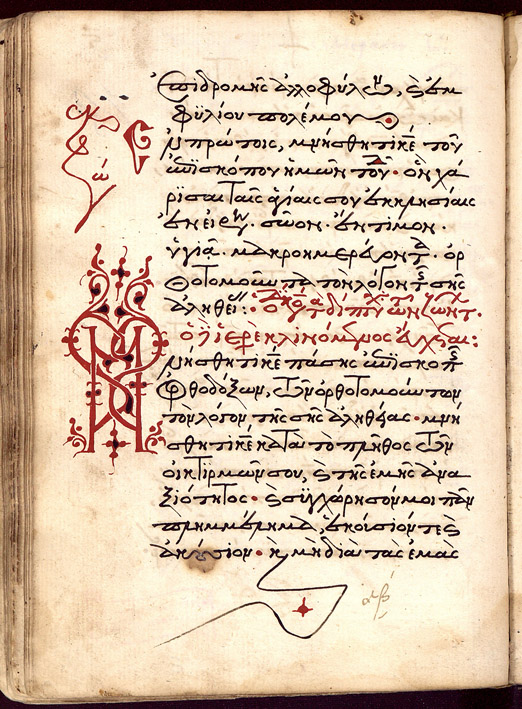 Ἐπιδρομῆς ἀλλοφύλων, καὶ ἐμ
φυλίου πολέμου
Ἐν πρώτοις, μνήσθητι κε̅ τοῦ
ἐπισκόπου ἡμῶν τοῦ δ· ὃν χά
ρισαι ταῖς ἁγίαις σου ἐκκλησίαις
ἐν εἰρήνῃ· σῶον· ἔντιμον·
ὑγιᾶ· μακροημερεύοντα· ὀρ
θοτομοῦντα τὸν λόγον τῆς σῆς
ἀληθείας:
ὁ ἱερεὺς κλινόμενος εὔχεται:
μνήσθητι κε̅ πάσης ἐπισκοπῆς
ὀρθοδόξων, τῶν ὀρθοτομούντων
τὸν λόγον τῆς σῆς ἀληθείας· μνή
σθητι κε̅ κατὰ τὸ πλῆθος τῶν
οἰκτιρμῶν σου, καὶ τῆς ἐμῆς ἀνα
ξιότητος· συγχώρησόν μοι πᾶν
πλημμέλημα, ἑκούσιόν τε καὶ
ἀκούσιον· καὶ μὴ διὰ τὰς ἐμὰς